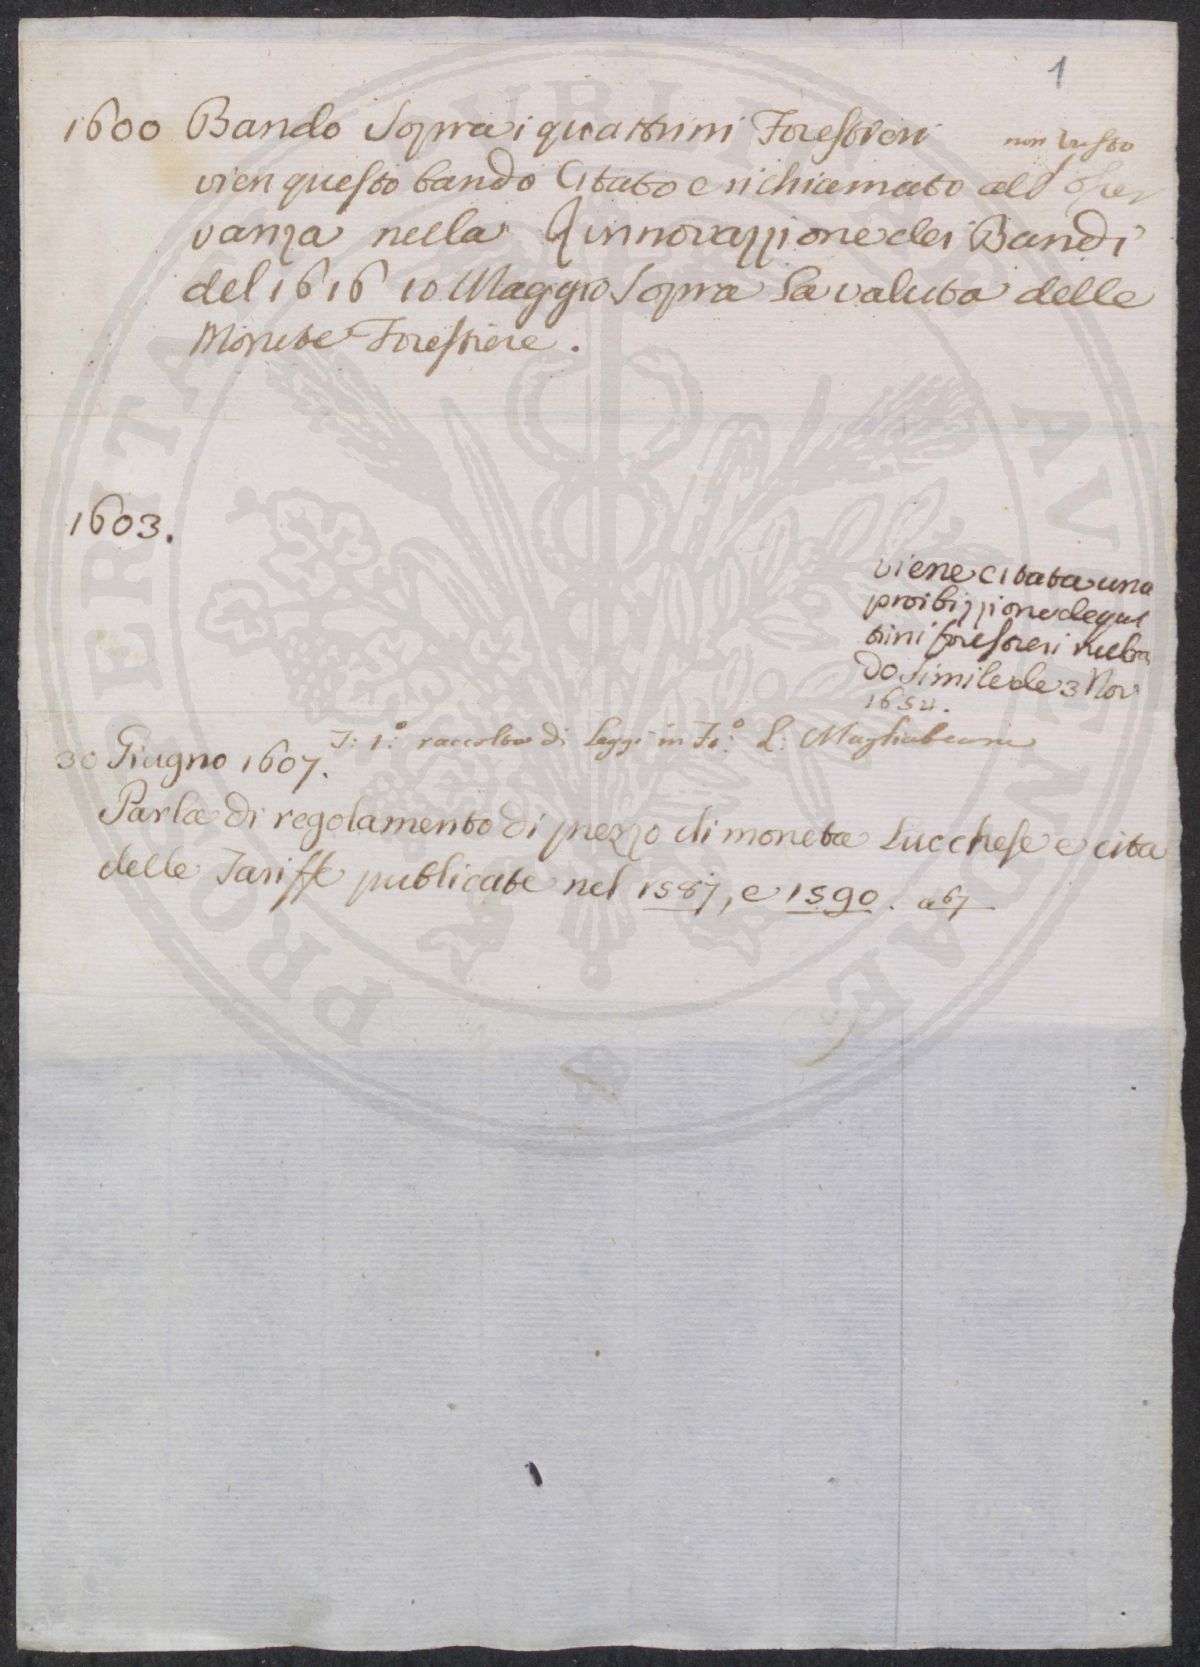 1
1600 Bando Sopra i quattrini Forestieri non visto
vien questo bando Citato e richiamato all' osser
vanza nella Rinnovazzione dei Bandi
del 1616 10 Maggio Sopra La valuta delle
Monete Forestiere.
1603.
viene citata una
proibizzione de quat
trini forestieri nel ban
do Simile de 3 Nov
1654.
T: 1.º raccolta di Leggi in Fo:º L: Magliabecana
30 Giugno 1607.
Parla di regolamento di prezzo di moneta Lucchese e cita
delle Tariffe publicate nel 1587, e 1590. a 67
PROSPERITAS VBIQVE AVGENDAE